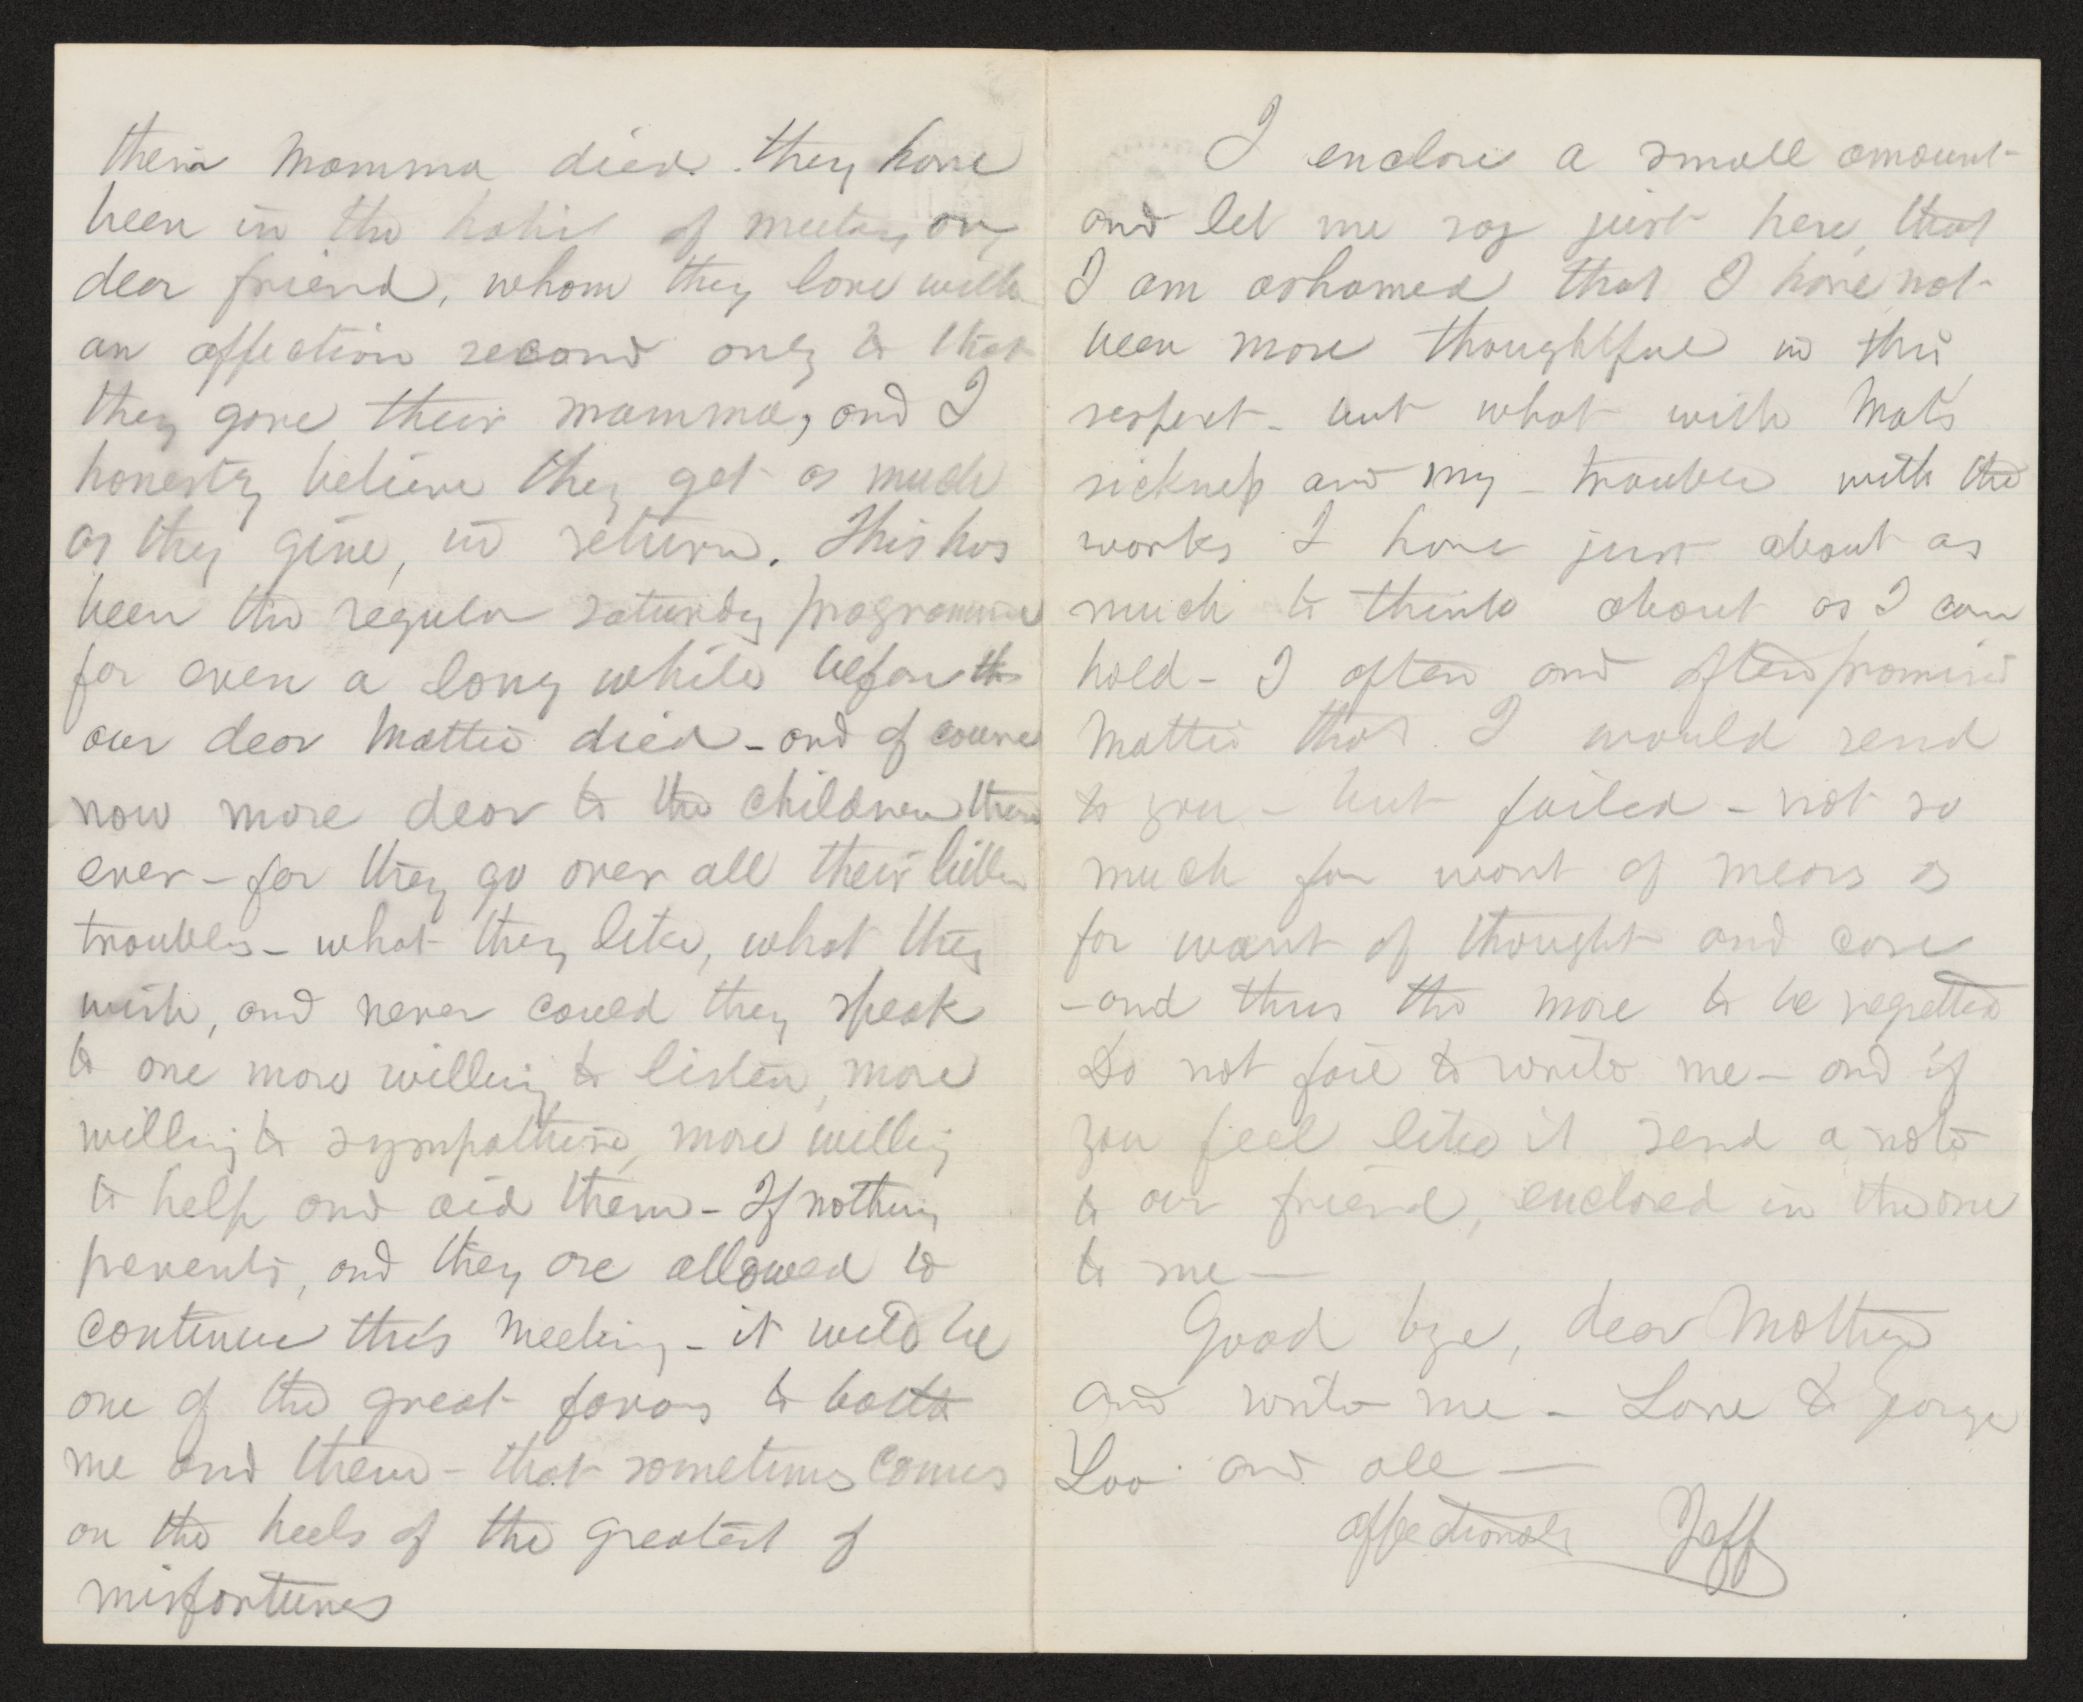 their Momma died. they have
been in the habit of meeting our
dear friend, whom they love with
an affection second only to that
they gave their mamma, and I
honestly believe they get as much
as they give, in return. This has
been the regular saturday programme
for even a long while before th
our dear Mattie died – and of course
now more dear to the children than
ever – for they go over all their little
troubles – what they like, what they
wish, and never could they speak
to one more willing to listen, more
willing to sympathise, more willing
to help and aid them – If nothing
prevents, and they are allowed to
continue this meeting – it will be
one of the great favors to both
me and them – that sometimes comes
on the heels of the greatest of
misfortunes
I enclose a small amount
and let me say just here, that
I am ashamed that I have not
been more thoughtful in this
respect – but what with Mat's
sickness and my – trouble with the
works I have just about as
much to think about as I can
hold – I often and often promised
Mattie that I would send
to you – but failed – not so
much for want of means as
for want of thought and care
– and thus the more to be regretted
Do not fail to write me – and if
you feel like it send a note
to our friend, enclosed in the one
to me —
Good bye, dear Mother
and write me – Love to George
Loo and all —
affectionately Jeff